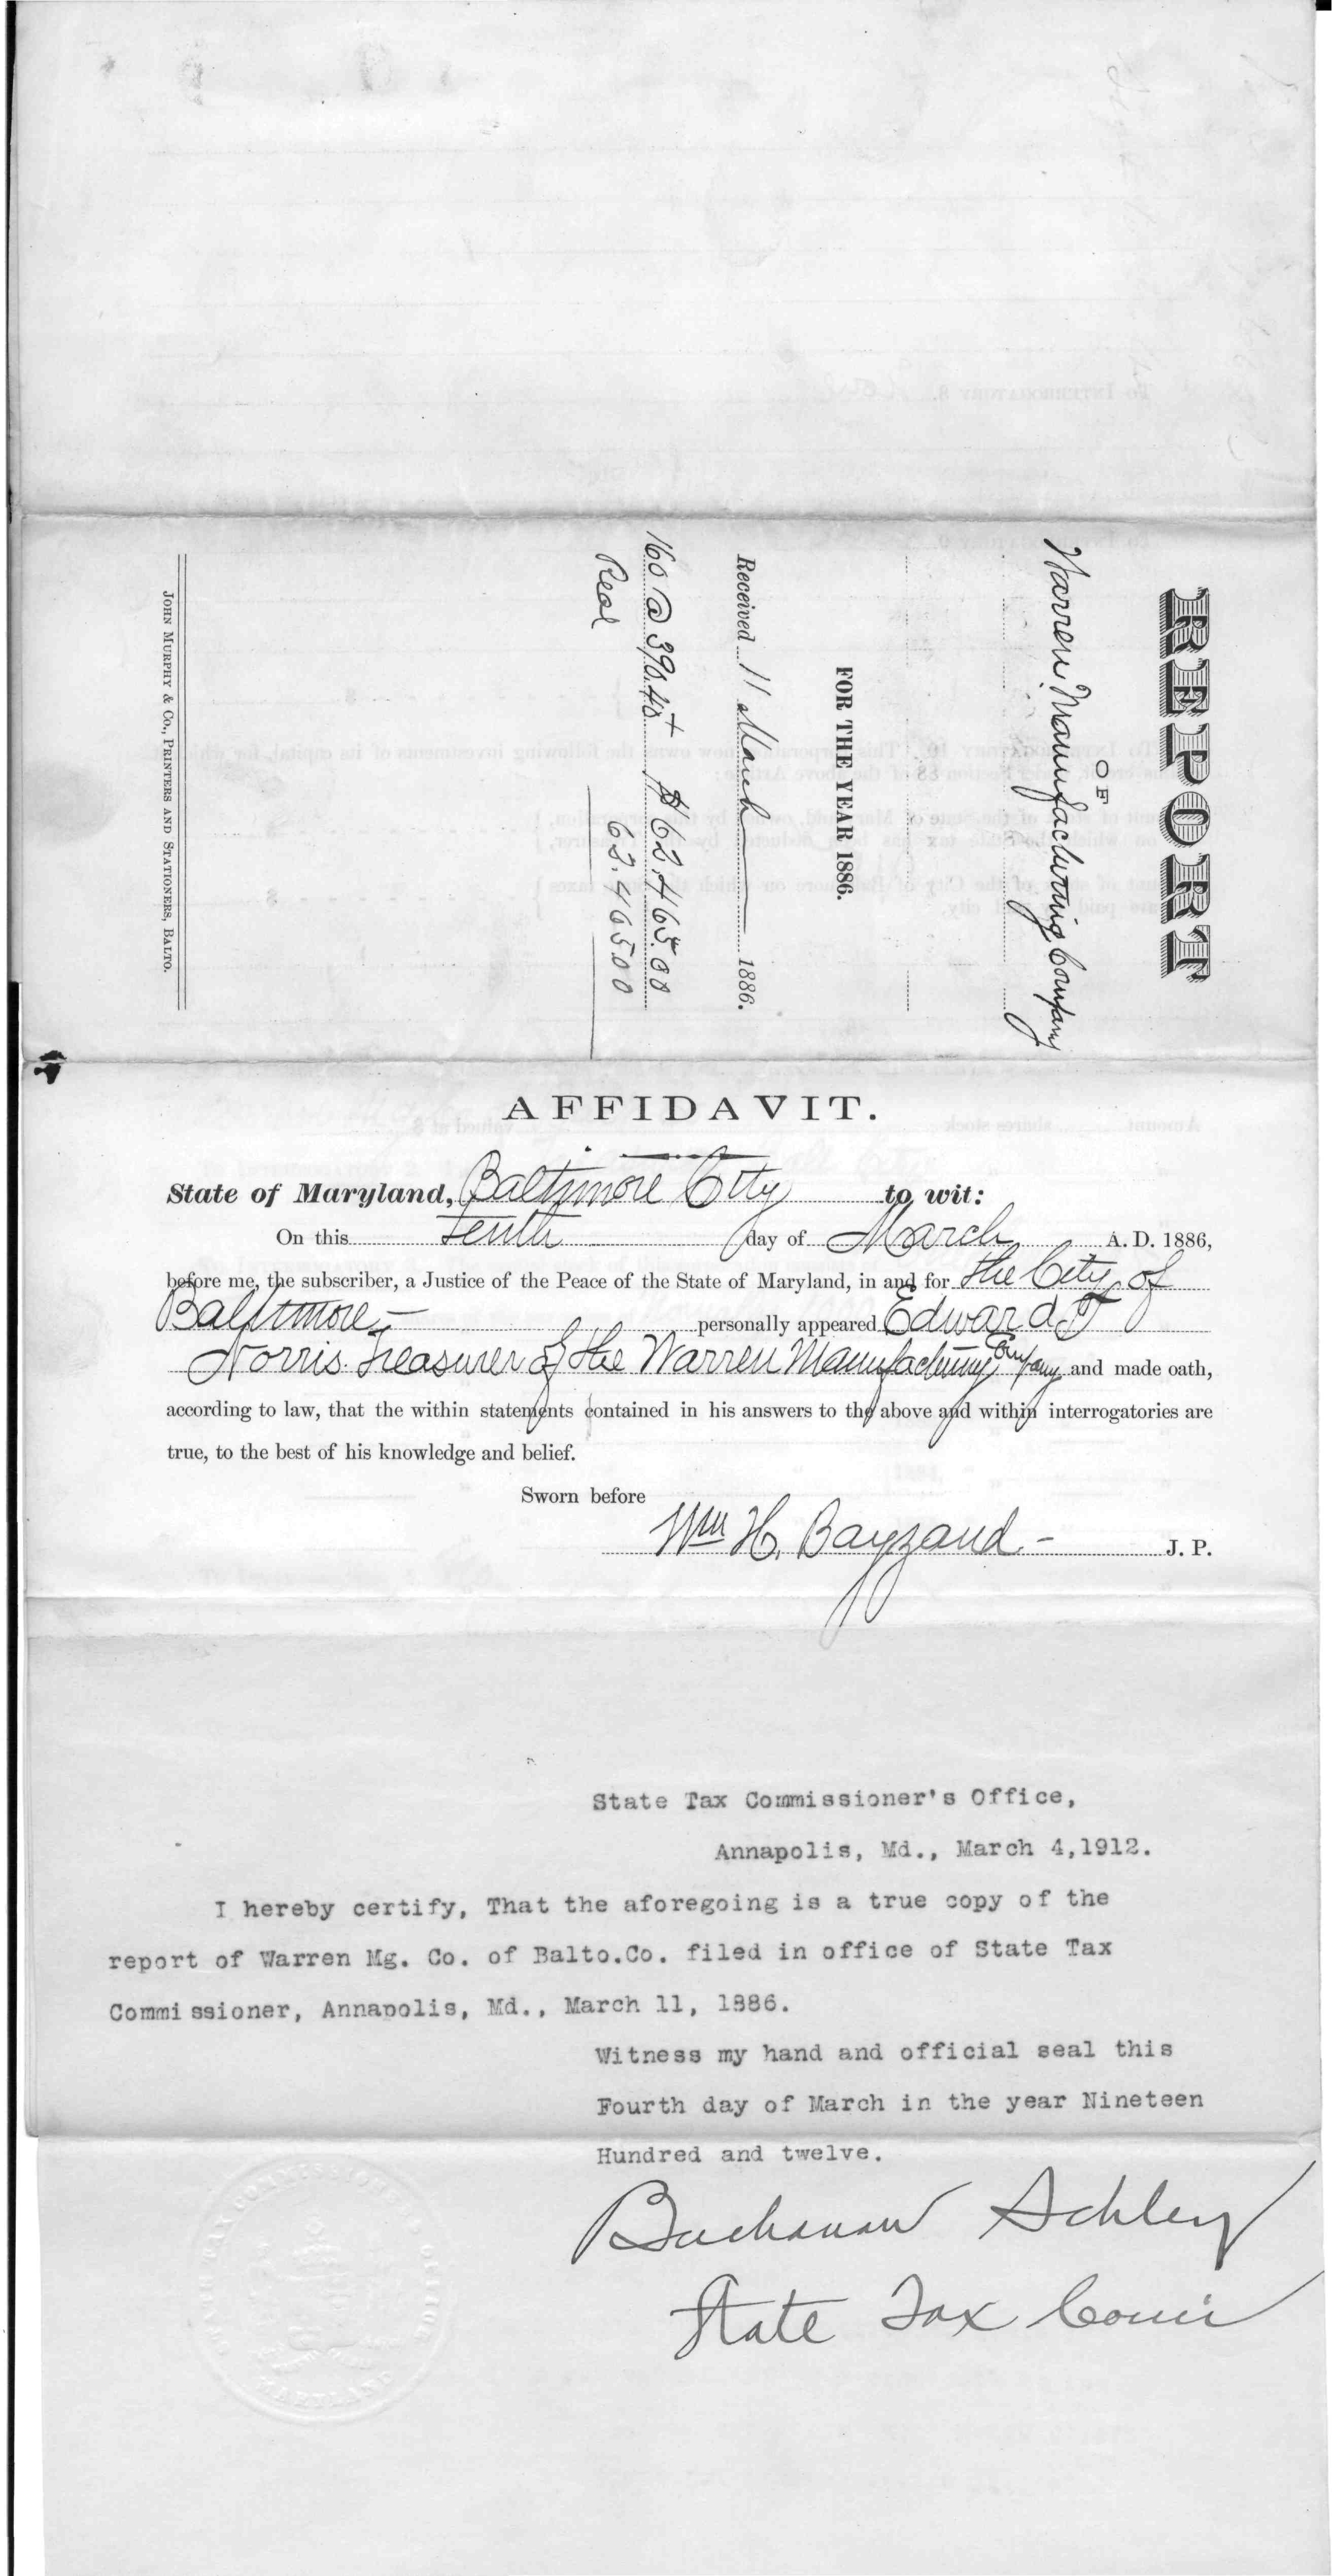 REPORT
OF
Warren Manufacturing Company
FOR THE YEAR 1886.
Received 11 March 1886.
160 @ 390.40+ $62,465.00
Real 62,465.00
JOHN MURPHY & CO., PRINTERS AND STATIONERS, BALTO.
AFFIDAVIT.
State of Maryland, Baltimore City to wit:
On this Tenth day of March A. D. 1886,
before me, the subscriber, a Justice of the Peace of the State of Maryland, in and for the City of
Baltimore— personally appeared Edward T
Norris Treasurer of the Warren Manufacturing Company and made oath,
according to law, that the within statements contained in his answers to the above and within interrogatories are
true, to the best of his knowledge and belief.
Sworn before
Wm H. Bayzand - J. P.
State Tax Commissioner's Office,
Annapolis, Md., March 4,1912.
I hereby certify, That the aforegoing is a true copy of the
report of Warren Mg. Co. of Balto.Co. filed in office of State Tax
Commissioner, Annapolis, Md., March 11, 1886.
Witness my hand and official seal this
Fourth day of March in the year Nineteen
Hundred and twelve.
Buchanan Schley
State Tax Comr
MARYLAND